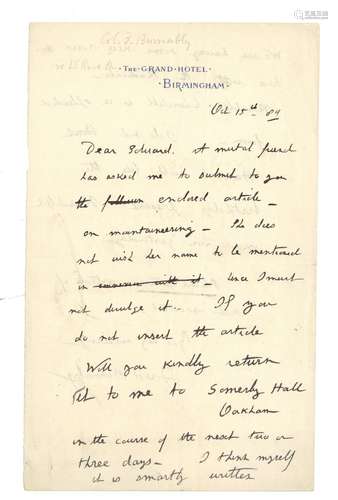 Col. F. Burnably
THE GRAND HOTEL
BIRMINGHAM.
Oct 15th 84
Dear Edward. A mutual friend
has asked me to submit to you
the enclosed article
on mountaineering - She does
not wish her name to be mentioned
in connexion with it. - hence I must
not divulge it. If you
do not insert the article
Will you kindly return
it to me to Somerby Hall
Oakham
in the course of the next two or
three days - I think myself
it is smartly written